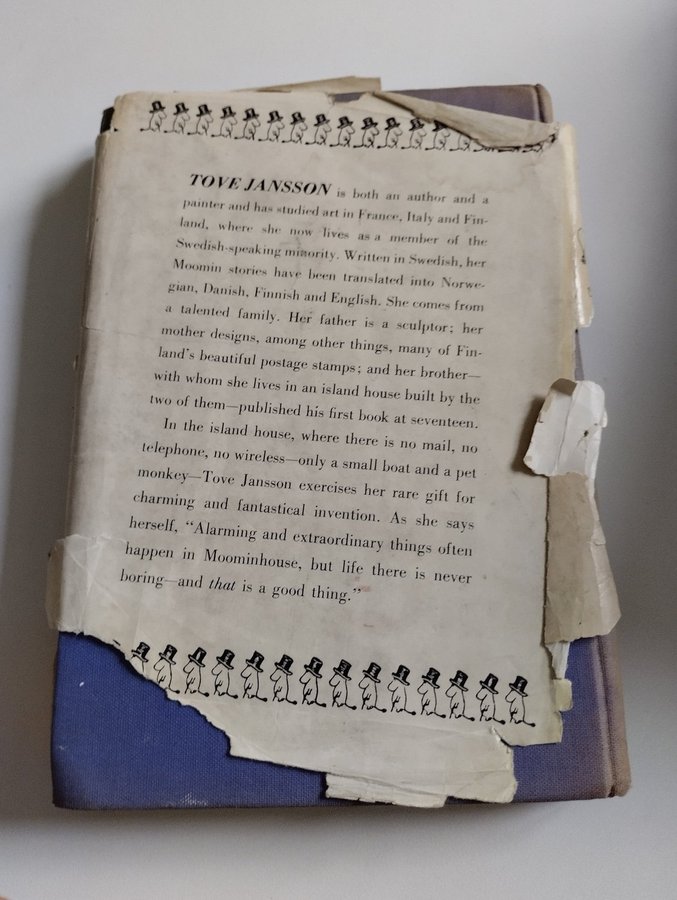 TOVE JANSSON is both an author and a
painter and has studied art in France, Italy and Fin-
land, where she now lives as a member of the
Swedish-speaking minority. Written in Swedish, her
Moomin stories have been translated into Norwe-
gian, Danish, Finnish and English. She comes from
a talented family. Her father is a sculptor; her
mother designs, among other things, many of Fin-
land's beautiful postage stamps; and her brother—
with whom she lives in an island house built by the
two of them—published his first book at seventeen.
In the island house, where there is no mail, no
telephone, no wireless—only a small boat and a pet
monkey—Tove Jansson exercises her rare gift for
charming and fantastical invention. As she says
herself, “Alarming and extraordinary things often
happen in Moominhouse, but life there is never
boring—and that is a good thing.”